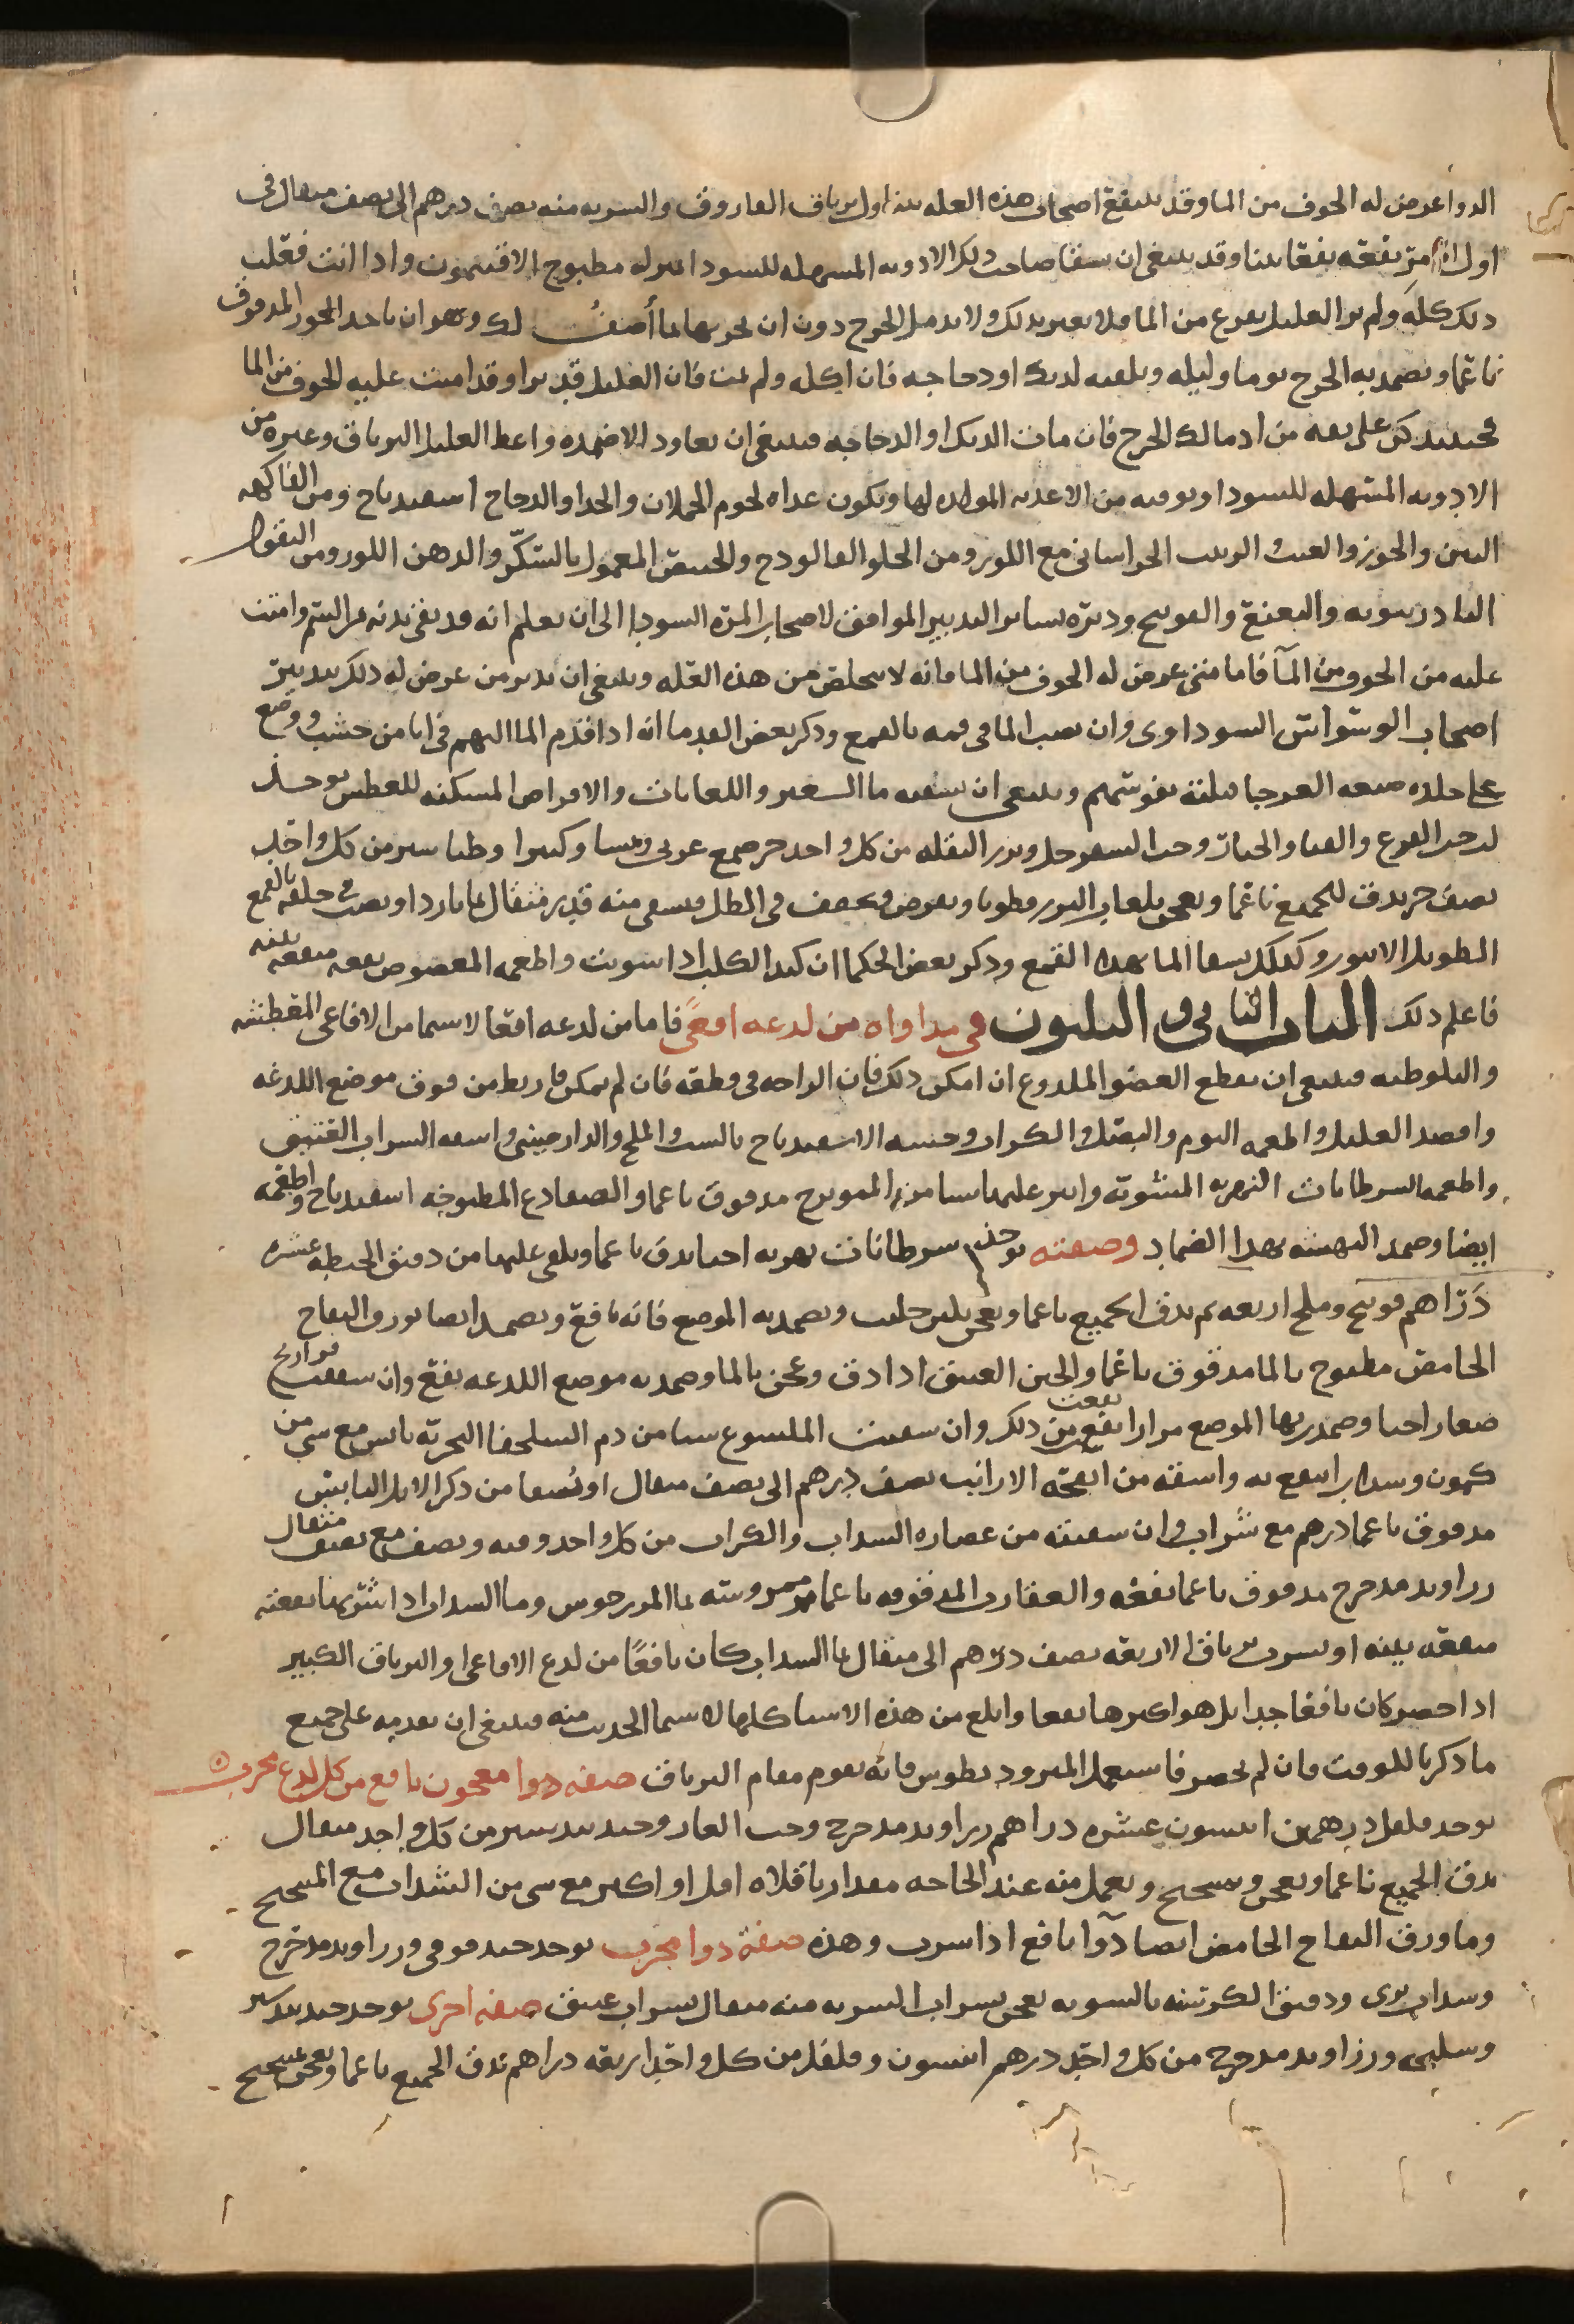 الدوا عرض له الخوف من الما وقد ينتفع اصحاب هذه العله بتناول ترياق الفاروق والشربه منه نصف درهم الى نصف مثقال في
اول الامر نفعه نفعا بينا وقد ينبغي ان يسقا صاحب ذلك الادويه المسهله للسودا بمنزله مطبوخ الافتيمون واذا انت فعلت
ذلك كله ولم تر العليل يفزع من الما فلا تغتر بذلك ولا تدمل الجرح دون ان تجربها بما أصف لك وهو ان ياخذ الجوز المدقوق
ناعما ويضمد به الجرح يوما وليله ويلقيه لديك او دجاجه فان اكله ولم يمت فان العليل قد برا وقد امنت عليه الخوف من الما
فحينيذ كن على ثقه من ادمالك الجرح فان مات الديك او الدجاجه فينبغي ان تعاود الاضمده واعط العليل الترياق وغيره من
الادويه المسهله للسودا وتوقيه من الاغذيه المولده لها ويكون غذاه لحوم الحملان والجدا والدجاج اسفيدباج ومن الفاكهه
التين والجوز والعنب الزبيب الخراساني مع اللوز ومن الحلوا الفالوذج والخبيص المعمول بالسكر والدهن اللوز ومن البقول
البادرنبويه والنعنع والفوتنج ودبره بساير التدبير الموافق لاصحاب المره السودا الى ان تعلم انه قد نقي بدنه من السم وامنت
عليه من الخوف من المآ فاما متى عرض له الخوف من الما فانه لا يتخلص من هذه العله وينبغي ان تدبر من عرض له ذلك بتدبير
اصحاب الوسواس السوداوى وان يصب الما في فمه بالقمع وذكر بعض القدما انه اذا قدم الما اليهم في انا من خشب ووضع
على جلده ضبعه العرجا قبلته نفوسهم وينبغي ان يسقيه ما الشعير واللعابات والاقراص المسكنه للعطش يوخذ
لب حب القرع والقثا والخيار وحب السفرجل وبزر البقله من كل واحد جز صمغ عربى ونشا وكثيرا وطباشير من كل واحد
نصف جز يدق الجميع ناعما ويعجن بلعاب البزر قطونا ويقرص ويجفف في الظل ويسقى منه قدر مثقال بما بارد او يصب في حلقه بالقمع
الطويل الانبوب وكذلك يسقا الما بهذا القمع وذكر بعض الحكما ان كبد الكلب اذا شويت واطعمه المعضوض نفعه منفعه بينه
فاعلم ذلك الباب الثاني والثلثون في مداواه من لدغه افعى فاما من لدغه افعا لاسيما من الافاعى المعطشه
والبلوطيه فينبغي ان يقطع العضو الملدوغ ان امكن ذلك فان الراحه في قطعه فان لم يمكن فاربط من فوق موضع اللدغه
وافصد العليل واطعمه الثوم والبصل والكراث وحسه الاسفيدباج بالشبت والملح والدارصيني واسقه الشراب العتيق
واطعمه السرطانات النهريه المشويه وانثر عليها شيا من الفوتنج مدقوق ناعما والضفادع المطبوخه اسفيدباج واطعمه
ايضا وضمد النهشه بهذا الضماد وصفته يوخذ سرطانات نهريه احيا يدق ناعما ويلقى عليها من دقيق الحنطه عشره
دراهم فوتنج وملح اربعه ثم يدق الجميع ناعما ويعجن بلبن حليب ويضمد به الموضع فانه نافع ويضمد ايضا بورق التفاح
الحامض مطبوخ بالما مدقوق ناعما والجبن العتيق اذا دق وعجن بالما وضمد به موضع اللدغه نفع وان شققت فراريج
صغار احيا وضمدت بها الموضع مرارا نفعت من ذلك وان سقيت الملسوع شيا من دم السلحفا البحريه يابس مع شي من
كمون وسداب انتفع به واسقه من انفحه الارانب نصف درهم الى نصف مثقال او يُسقا من ذكر الايل اليابس
مدقوق ناعما درهم مع شراب وان سقيته من عصاره السداب والكراث من كل واحد وقيه ونصف مع نصف مثقال
زراوند مدحرج مدقوق ناعما نفعه والعقارب المدقوقه ناعما ممروسه بما المرزجوش وما السداب اذا شربها نفعته
منفعه بينه او يشرب ترياق الاربعه نصف درهم الى مثقال بما السداب كان نافعا من لدغ الافاعى والترياق الكبير
اذا حضر كان نافعا جدا بل هو اكثرها نفعا وابلغ من هذه الاشيا كلها لاسيما الحديث منه فينبغي ان تقدمه على جميع
ما ذكرنا للوقت فان لم يحضر فاستعمل المثروديطوس فانه يقوم مقام الترياق صفه دوا معجون نافع من كل لدغ مجرب
يوخذ فلفل درهمين انيسون عشره دراهم زراوند مدحرج وحب الغار وجندبيدستر من كل واحد مثقال
يدق الجميع ناعما ويعجن ويعمل منه عند الحاجه مقدار باقلاه اقل او اكثر مع شي من الشراب مع
وما ورق التفاح الحامض ايضا دوآ نافع اذا شرب وهذه صفة دوا مجرب يوخذ حندقوقي وزراوند مدحرج
وسداب برى ودقيق الكرسنه بالسويه يعجن بشراب الشربه منه مثقال بشراب عتيق صفه اخرى يوخذ جندبيدستر
وسليخه وزراوند مدحرج من كل واحد درهم انيسون وفلفل من كل واحد اربعه دراهم تدق الجميع ناعما ويعجن